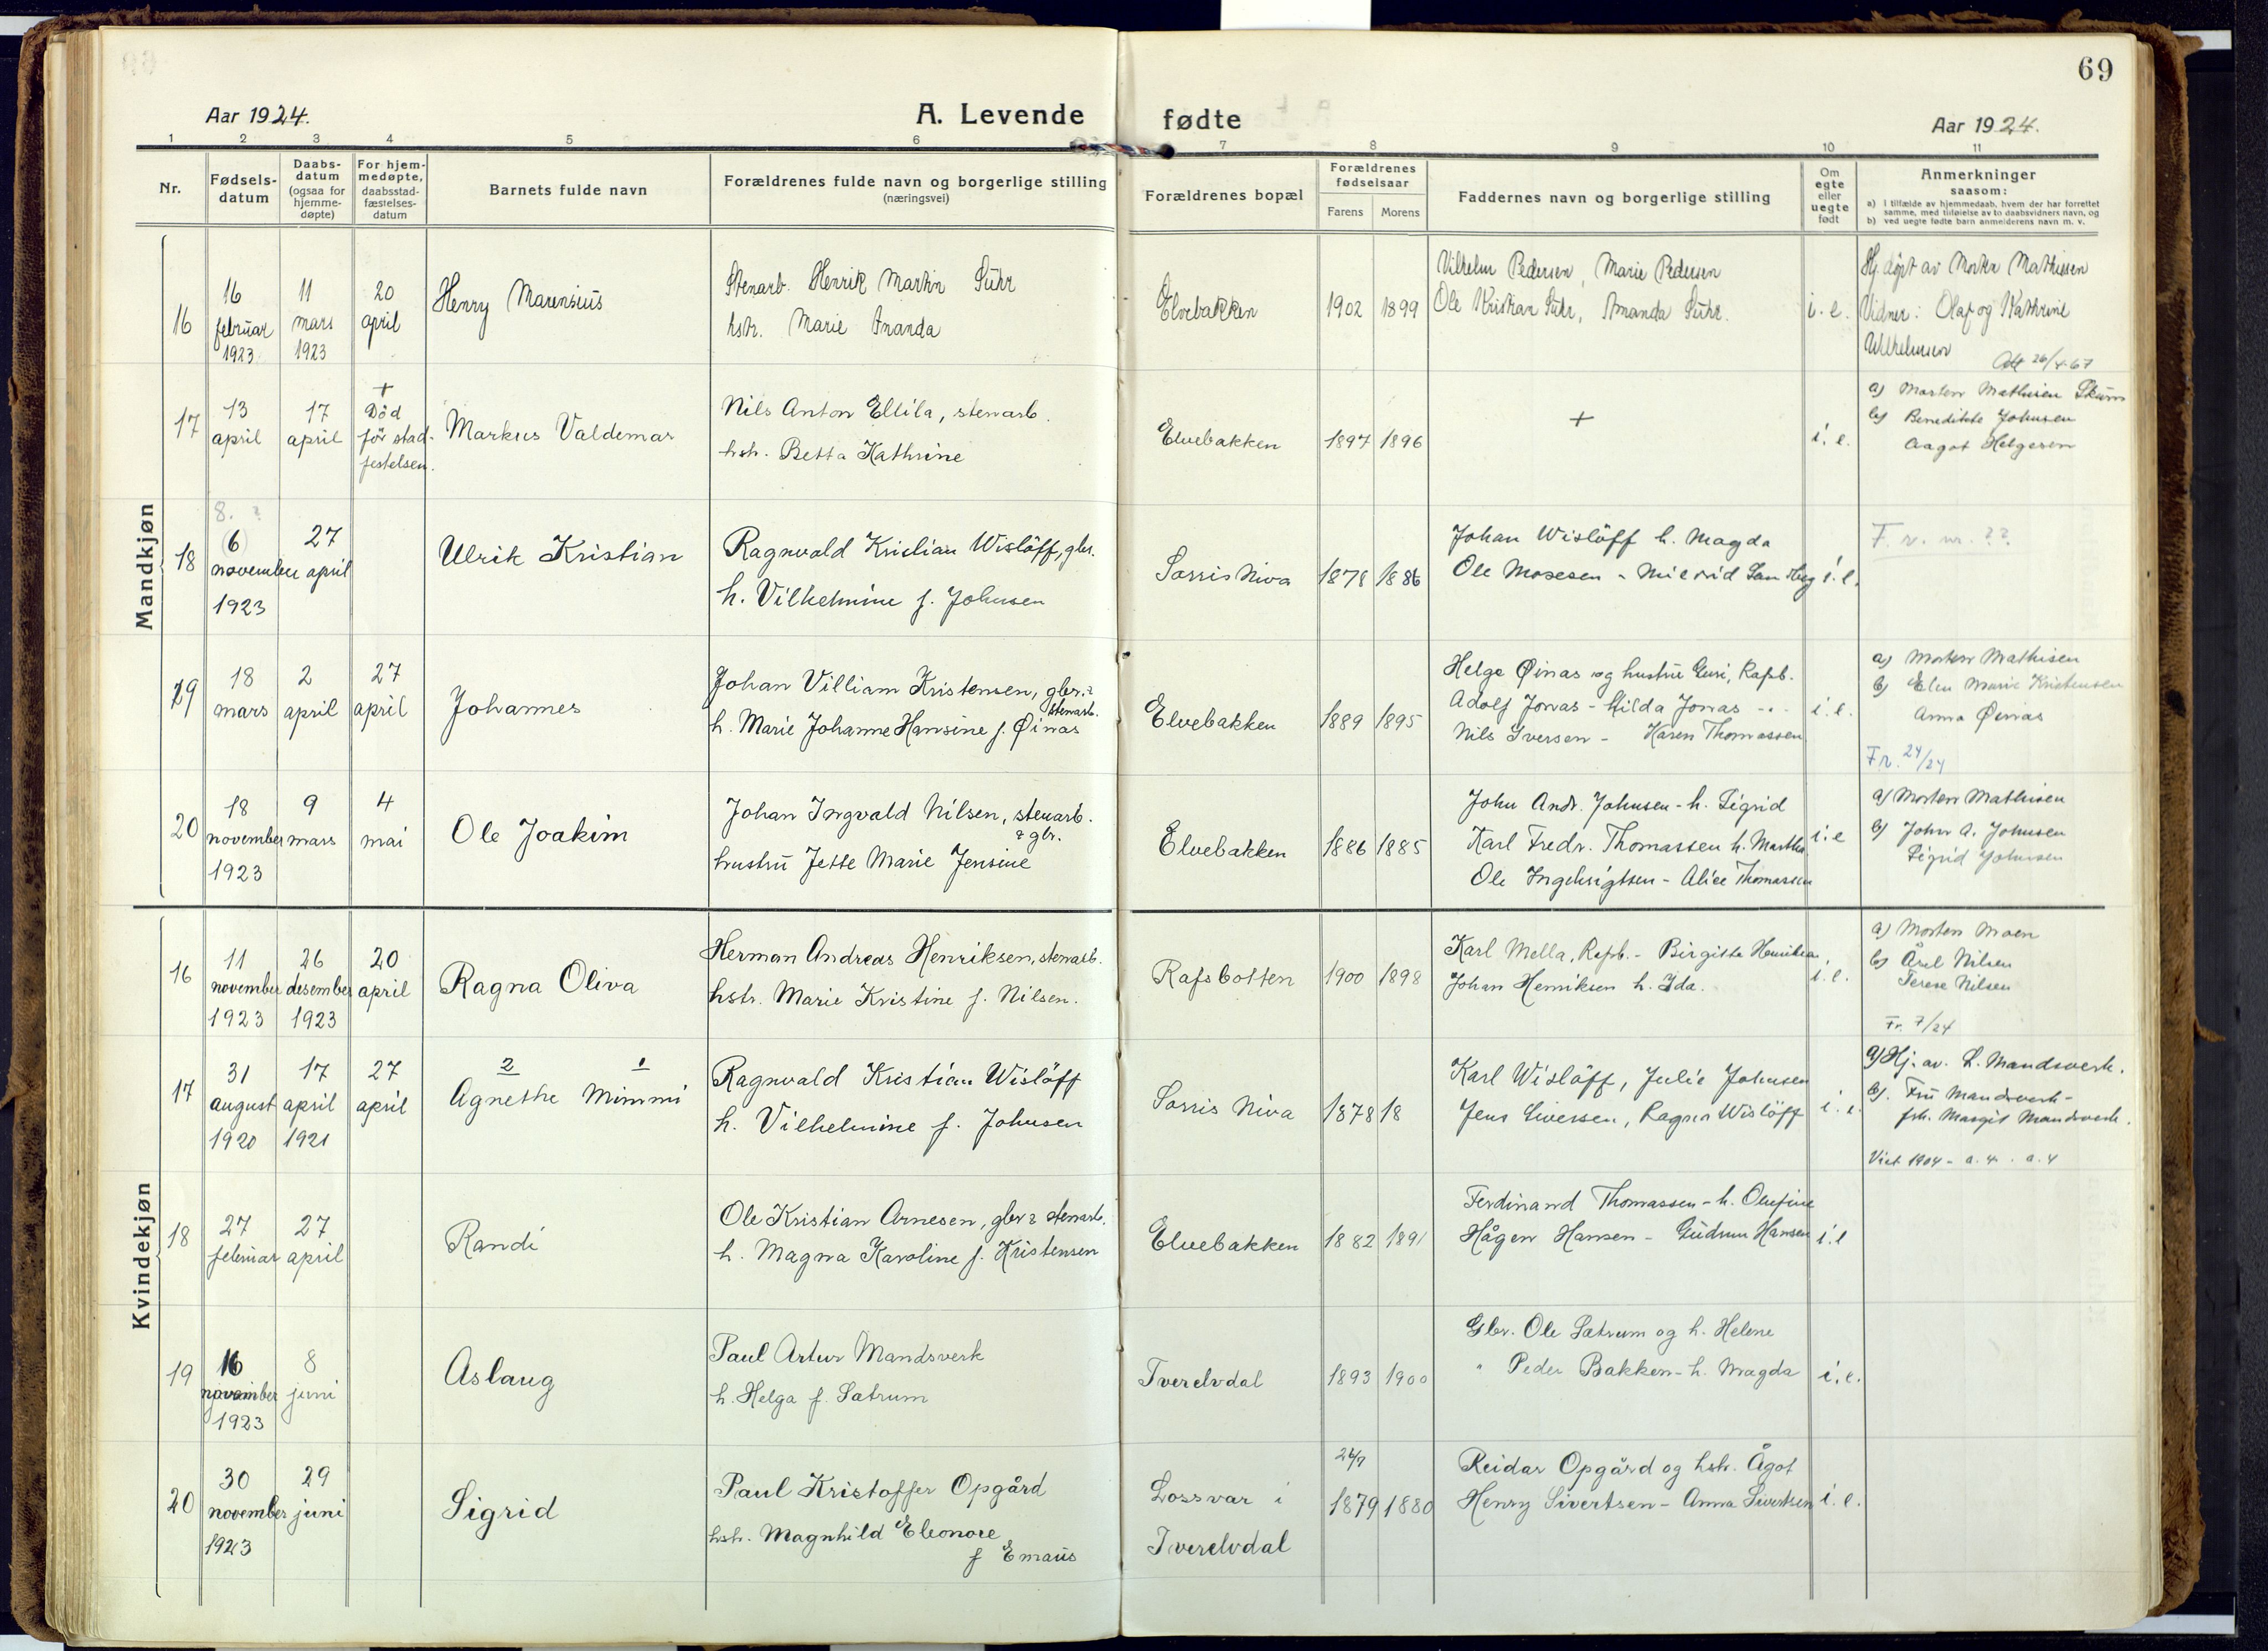 69
Aar 1924.
A. Levende fødte
Aar 1924.
1 2 3 4 5 6 7 8 9 10 11
Nr.
Fødselsdatum
Daabsdatum (ogsaa for hjemmedøpte)
For hjemmedøpte, daabsstadfæstelsesdatum
Barnets fulde navn
Forældrenes fulde navn og borgerlige stilling
(næringsvei)
Forældrenes bopæl
Forældrenes fødselsaar
Farens Morens
Faddernes navn og borgerlige stilling
Om egte eller uegte født
Anmerkninger
saasom:
a) i tilfælde av hjemmedaab, hvem der har forrettet
samme, med tilføielse av to daabsvidners navn, og
b) ved uegte fødte barn anmelderens navn m. v.
Mandkjøn
16
16 februar 1923
11 mars 1923
20 april
Henry Marensius
Stenarb. Henrik Martin Suhr
hstr. Marie Amanda
Elvebakken
1902 1899
Vilhelm Pedersen, Marie Pedersen
Ole Kristian Suhr, Amanda Suhr.
i. e.
Hj. døpt av Morten Mathiesen
Vidner: Olaf og Kathrine
Wilhelmsen
Att 26/4-67
17
13 april
17 april
+
Död
för stad-
festelsen.
Markus Valdemar
Nils Anton Ellila, stenarb.
hstr. Betta Kathrine
Elvebakken
1897 1896
+
i. e.
a) Morten Mathisen
b) Benedikte Johnsen
Aagot Helgesen
18
8. ?
(6) november 1923
27 april
Ulrik Kristian
Ragnvald Kristian Wislöff, gbr.
h. Vilhelmine f. Johnsen
Sorrisniva
1878 1886
Johan Wislöff h. Magda
Ole Mosesen -
i. e.
F. r. nr. ??
19
18 mars
2 april
27 april
Johannes
Johan Villiam Kristensen, gbr. &
stenarb.
h. Marie Johanne Hansine f. Øinas
Elvebakken
1889 1895
Helge Øinas og hustru Guri, Rafsb.
Adolf Jonas - Hilda Jonas - " -
Nils Iversen - Karen Thomassen
i. e.
a) Morten Mathisen
b) Elen Marie Kristensen
Anna Øinas
Fr. 24/24
20
18 november 1923
9 mars
4 mai
Ole Joakim
Johan Ingvald Nilsen, stenarb.
& gbr.
hustru Jette Marie Jensine
Elvebakken
1886 1885
John Andr. Johnsen - h. Sigrid
Karl Fredr. Thomassen h. Martha
Ole Ingebrigtsen - Alice Thomassen
i. e
a) Morten Mathisen
b) John A. Johnsen
Sigrid Johnsen
Kvindekjøn
16
11 november 1923
26 desember 1923
20 april
Ragna Oliva
Herman Andreas Henriksen, stenarb.
hstr. Marie Kristine f. Nilsen.
Rafsbotten
1900 1898
Karl Mella, Rafsb. - Birgitte Henriksen,
Johan Henriksen h. Ida.
i. e.
a) Morten Moen
b) Årel Nilsen
Terese Nilsen
Fr. 7/24
17
31 august 1920
17 april 1921
27 april
2 1
Agnethe Mimmi
Ragnvald Kristian Wislöff
h. Vilhelmine f. Johnsen
Sorris niva
1878 18
Karl Wislöff, Julie Johnsen
Jens Siversen, Ragna Wislöff
i. e.
a) Hj. av. L. Mandsverk.
b). Fru Mandsverk -
frk. Margit Mandsverk.
18
27 februar
27 april
Randi
Ole Kristian Arnesen, gbr & stenarb.
h. Magna Karoline f. Kristensen
Elvebakken
1882 1891
Ferdinand Thomassen - h. Olufine
Hågen Hansen - Gudrun Hansen
i. e
19
16 november 1923
8 juni
Aslaug
Paul Artur Mandsverk
h. Helga f. Sætrum
Tverelvdal
1893 1900
Gbr. Ole Sætrum og h. Helene
" Peder Bakken - h. Magda
i. e.
20
30 november 1923
29 juni
Sigrid
Paul Kristoffer Opgård
hstr. Magnhild Eleonore
f Emaus
Lossvar i
Tverelvdal
24/7
1879 1880
Reidar Opgård og hstr. Ågot
Henry Sivertsen - Anna Sivertsen
i. e.